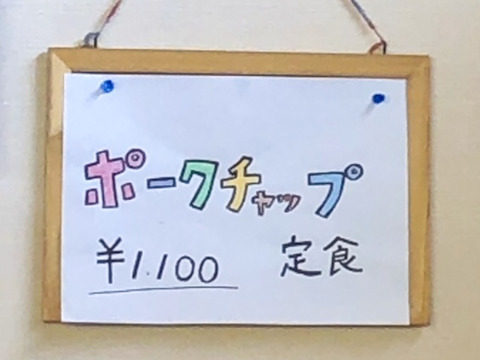 ポークチャップ
¥1.100 定食